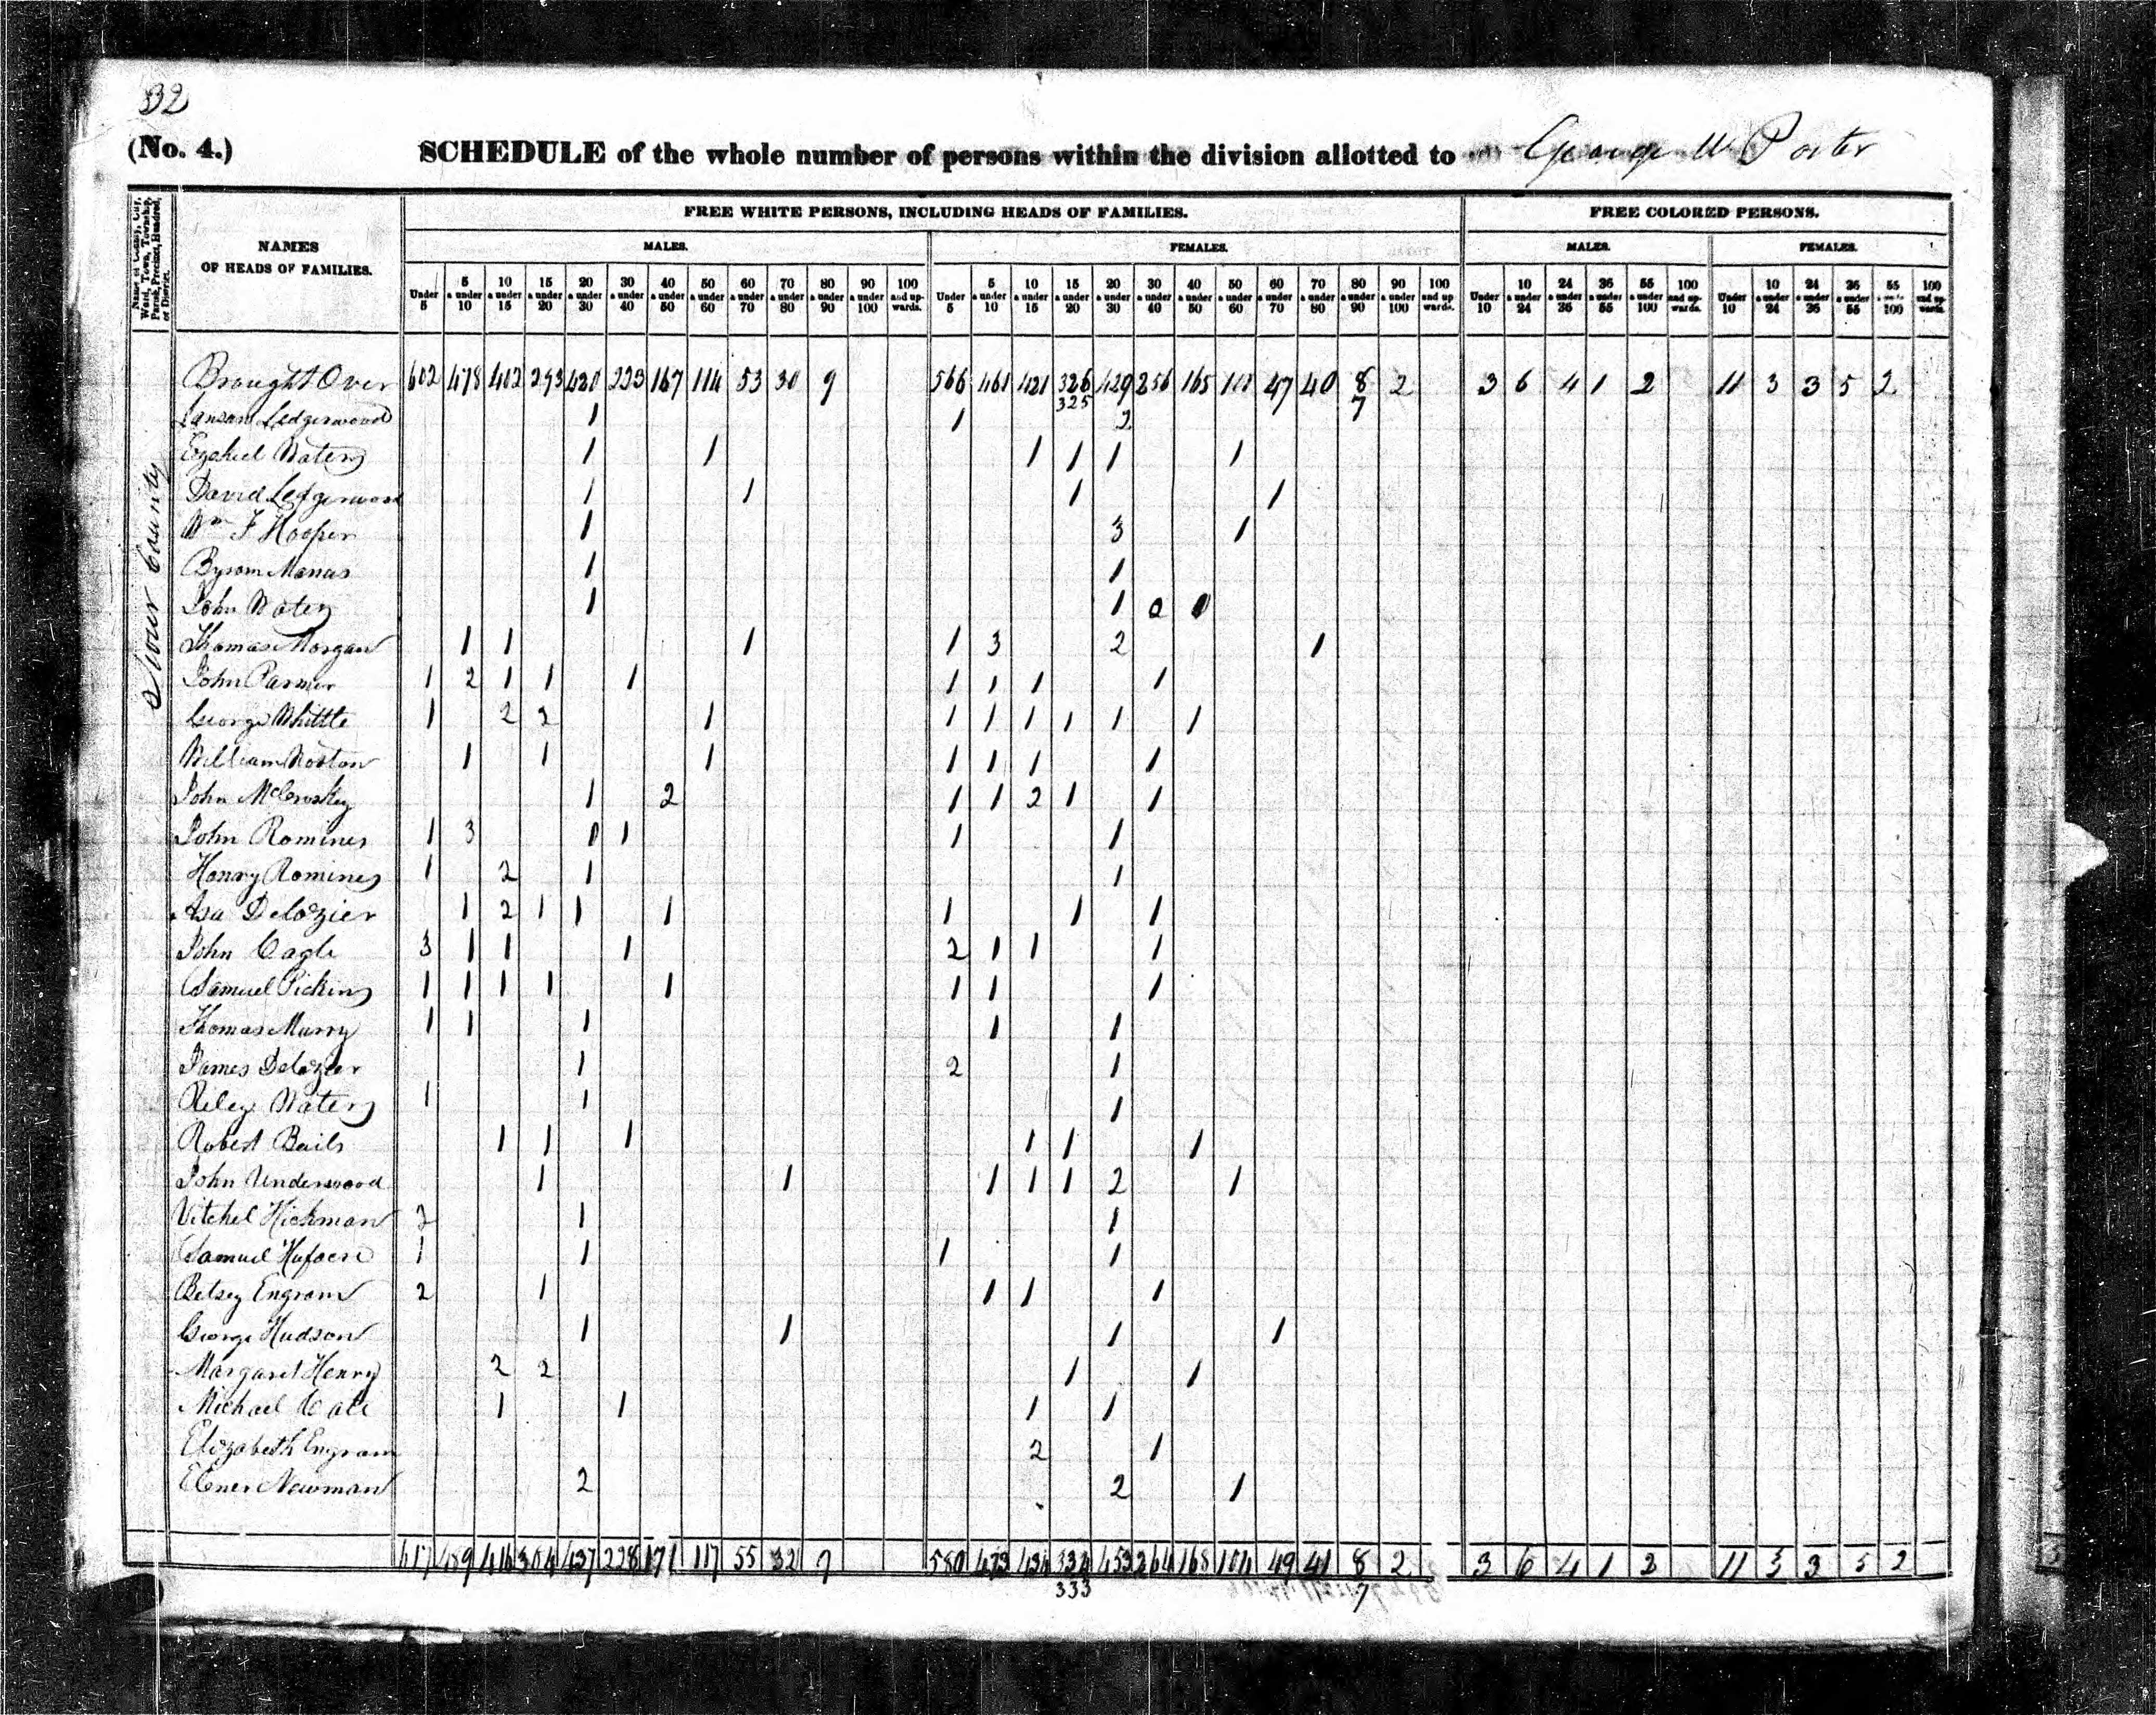 32
(No. 4.) SCHEDULE of the whole number of persons within the division allotted to George W Porter
Name of County, City, Ward, Town, Township, Parish, Precinct, Hundred, or District.
NAMES OF HEADS OF FAMILIES.
FREE WHITE PERSONS, INCLUDING HEADS OF FAMILIES.
FREE COLORED PERSONS.
MALES. FEMALES. MALES. FEMALES.
Under 5 | 5 & under 10 | 10 & under 15 | 15 & under 20 | 20 & under 30 | 30 & under 40 | 40 & under 50 | 50 & under 60 | 60 & under 70 | 70 & under 80 | 80 & under 90 | 90 & under 100 | 100 and upwards. | Under 5 | 5 & under 10 | 10 & under 15 | 15 & under 20 | 20 & under 30 | 30 & under 40 | 40 & under 50 | 50 & under 60 | 60 & under 70 | 70 & under 80 | 80 & under 90 | 90 & under 100 | 100 and upwards. | Under 10 | 10 & under 24 | 24 & under 36 | 36 & under 55 | 55 & under 100 | 100 and upwards. | Under 10 | 10 & under 24 | 24 & under 36 | 36 & under 55 | 55 & under 100 | 100 and upwards.
Sevier County
Brought Over 602 478 402 293 420 223 167 114 53 30 9 566 461 421 326 429 256 165 47 40 8 2 3 6 4 1 2 11 3 3 5 2
325 7
Ledgerwood 1 1 2
Ezekiel Waters 1 1 1 1 1 1
David Ledgerwood 1 1 1 1
Wm F Hooper 1 3 1
Byrom Manas 1 1
John Waters 1 1
Thomas Morgan 1 1 1 1 3 2 1
John Parmer 1 2 1 1 1 1 1 1 1
George Whittle 1 2 2 1 1 1 1 1 1 1
William 1 1 1 1 1 1 1
John McCroskey 1 2 1 1 2 1 1
John Romines 1 3 1 1 1
Henry Romines 1 2 1 1
Asa Delozier 1 2 1 1 1 1 1 1
John Cagle 3 1 1 1 2 1 1 1
Samuel Pickins 1 1 1 1 1 1 1 1
Thomas Murry 1 1 1 1 1
James Delozier 1 2 1
Riley Waters 1 1 1
Robert Bails 1 1 1 1 1 1
John Underwood 1 1 1 1 1 2 1
Vitchel Hickman 2 1 1
Samuel 1 1 1 1
Betsey Engram 2 1 1 1 1
George Hudson 1 1 1 1
Margaret Henry 2 2 1 1
Michael Cate 1 1 1 1
Elizabeth Engram 2 1
Ebner Newman 2 2 1
617 489 416 304 437 228 171 117 55 32 9 580 473 434 334 453 264 168 104 49 41 8 2 3 6 4 1 2 11 3 3 5 2
333 7